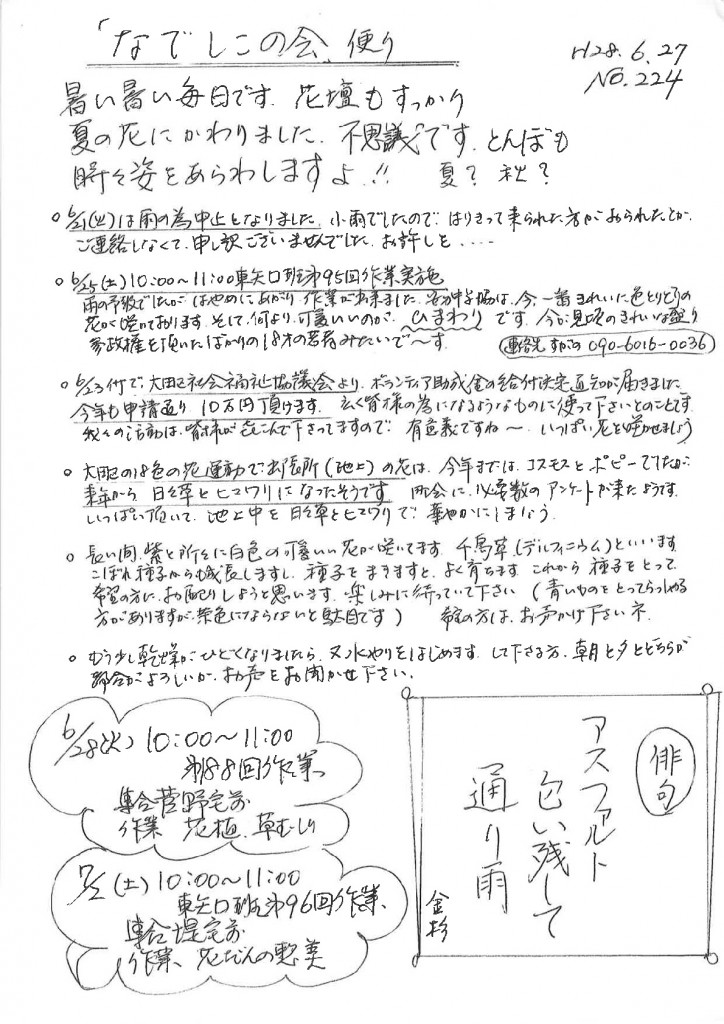 「なでしこの会」便り
H28.6.27
NO.224
暑い暑い毎日です。花壇もすっかり
夏の花にかわりました。不思議です。とんぼも
時々姿をあらわしますよ!! 夏? 秋?
○6/21(火)は雨の為中止となりました。小雨でしたので、はりきって来られた方がおられたとか、
ご連絡しなくて、申し訳ございませんでした。お許しを....
○6/25(土)10:00〜11:00東矢口班第95回作業実施
雨の予報でしたが はやめにあがり、作業が出来ました。 は、今一番きれいに色とりどりの
花が咲いております。そして、何より、可愛いいのが、ひまわりです。今が見頃のきれいな盛り
参政権を頂いたばかりの18才の若者みたいで〜す。
連絡先 すがの 090-6016-0036
○6/23付で大田区社会福祉協議会より、ボランティア助成金の給付決定通知が届きました。
今年も申請通り10万円頂けます。広く皆様の為になるようなものに使って下さいとのことです。
我々の活動は、皆様が喜こんで下さってますので、有意義ですね〜。いっぱい花を咲かせましょう
○大田区の18色の花運動で出張所(池上)の花は、今年までは、コスモスとポピーでしたが、
来年から 日々草とヒマワリになったそうです。町会に、必要数のアンケートが来たようです。
いっぱい頂いて、池上中を日々草とヒマワリで華やかにしましょう。
○長い間、紫と所々に白色の可愛いい花が咲いてます。千鳥草(デルフィニウム)といいます。
こぼれ種子から成長しますし、種子をまきますと、よく育ちます。これから種子をとって、
希望の方に、お配りしようと思います。楽しみに待っていて下さい (青いものをとってらっしゃる
方がありますが、茶色にならないと駄目です) 希望の方は、お声かけ下さいネ。
○もう少し乾燥がひどくなりましたら、又水やりをはじめます。して下さる方、朝と夕とどちらが
都合がよろしいか、お声をお聞かせ下さい。
6/28(火) 10:00〜11:00
第188回作業
集合菅野宅前
作業 花植、草むしり
7/2(土)10:00〜11:00
東矢口班第96回作業
集合堤宅前
作業、花だんの整美
俳句
アスファルト
匂い残して
通り雨
金杉